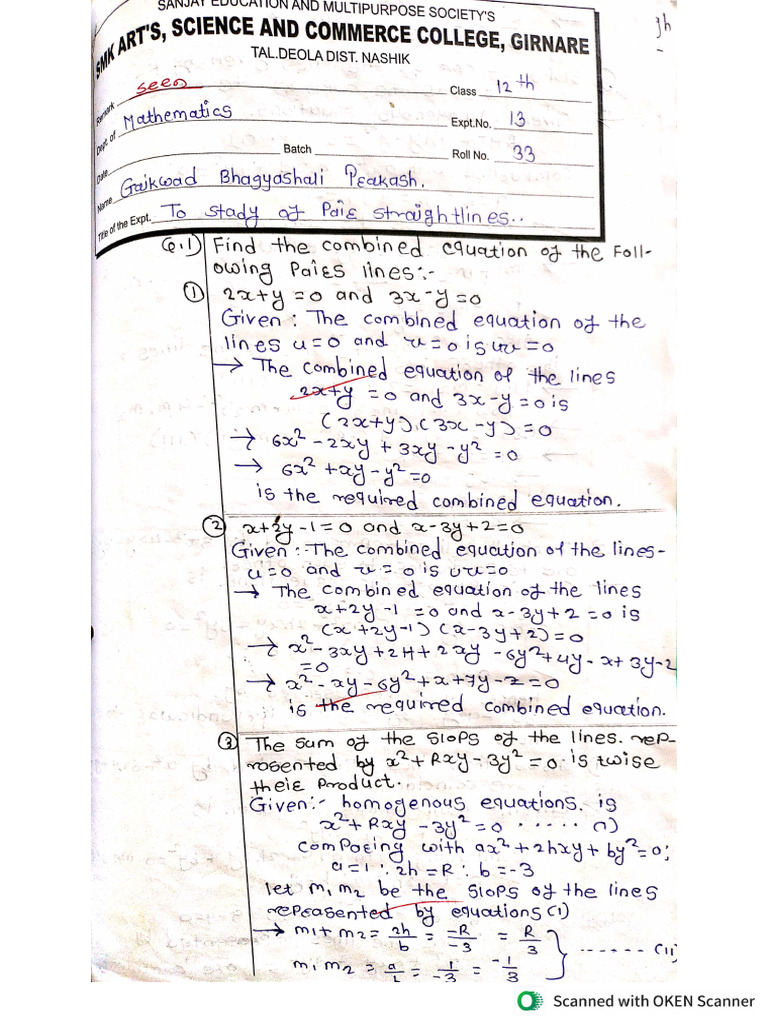 SANJAY EDUCATION AND MULTIPURPOSE SOCIETY'S
SMK ART'S, SCIENCE AND COMMERCE COLLEGE, GIRNARE
TAL.DEOLA DIST. NASHIK
Remark seen Class 12th
Dept. of Mathematics Expt.No. 13
Date Batch Roll No. 33
Name Gaikwad Bhagyashali Peakash.
Title of the Expt. To study of Paiε straightlines..
Q.1) Find the combined equation of the Foll-
owing Paiεs lines:-
① 2x+y=0 and 3x-y=0
Given: The combined equation of the
lines u=0 and v=0 is uv=0
→ The combined equation of the lines
2x+y =0 and 3x-y=0 is
(2x+y).(3x-y)=0
→ 6x²-2xy+3xy-y²=0
→ 6x²+xy-y²=0
is the required combined equation.
② x+2y-1=0 and x-3y+2=0
Given:-The combined equation of the lines-
u=0 and v=0 is uv=0
→ The combined equation of the lines
x+2y-1=0 and x-3y+2=0 is
(x+2y-1)(x-3y+2)=0
→ x²-3xy+2H+2xy-6y²+4y-x+3y-2
=0
→ x²-xy-6y²+x+7y-2=0
is the required combined equation.
③ The sum of the slops of the lines. rep-
rosented by x²+Rxy-3y²=0. is twise
theiε product.
Given:- homogenous equations. is
x²+Rxy-3y²=0 ..... (1)
compaεing with ax²+2hxy+by²=0;
a=1 : 2h=R : b=-3
let m₁m₂ be the slops of the lines
repεasented by equations(1)
→ m₁+m₂= 2h/b = -R/-3 = R/3
...... (11)
m₁m₂ = a/b = 1/-3 = -1/3
Scanned with OKEN Scanner